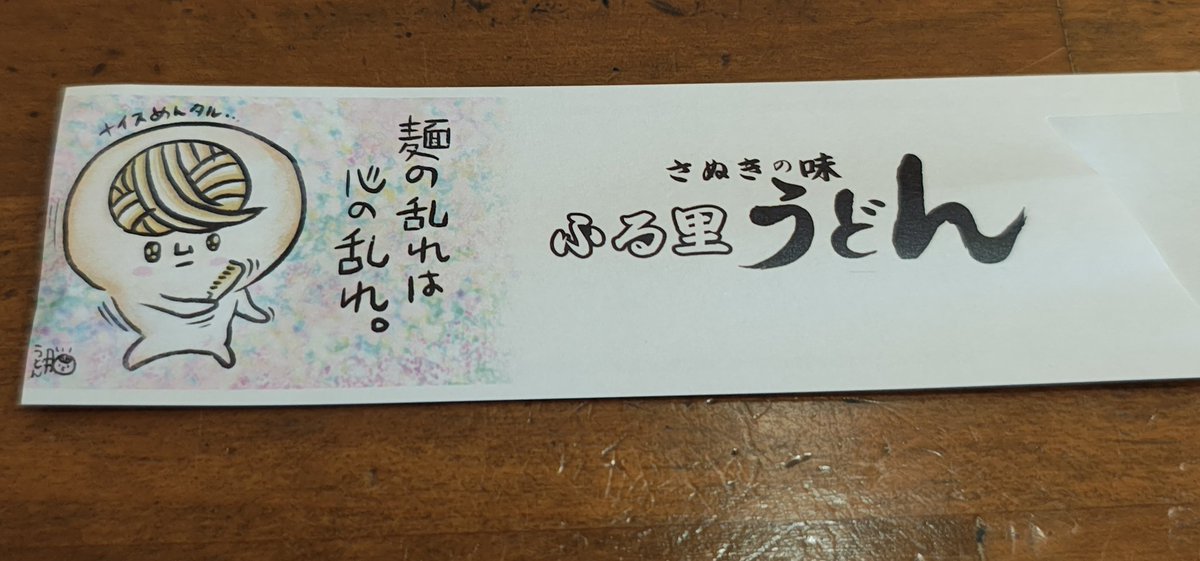 ナイスめんタル..
麺の乱れは
心の乱れ。
うどん
さぬきの味
ふる里うどん